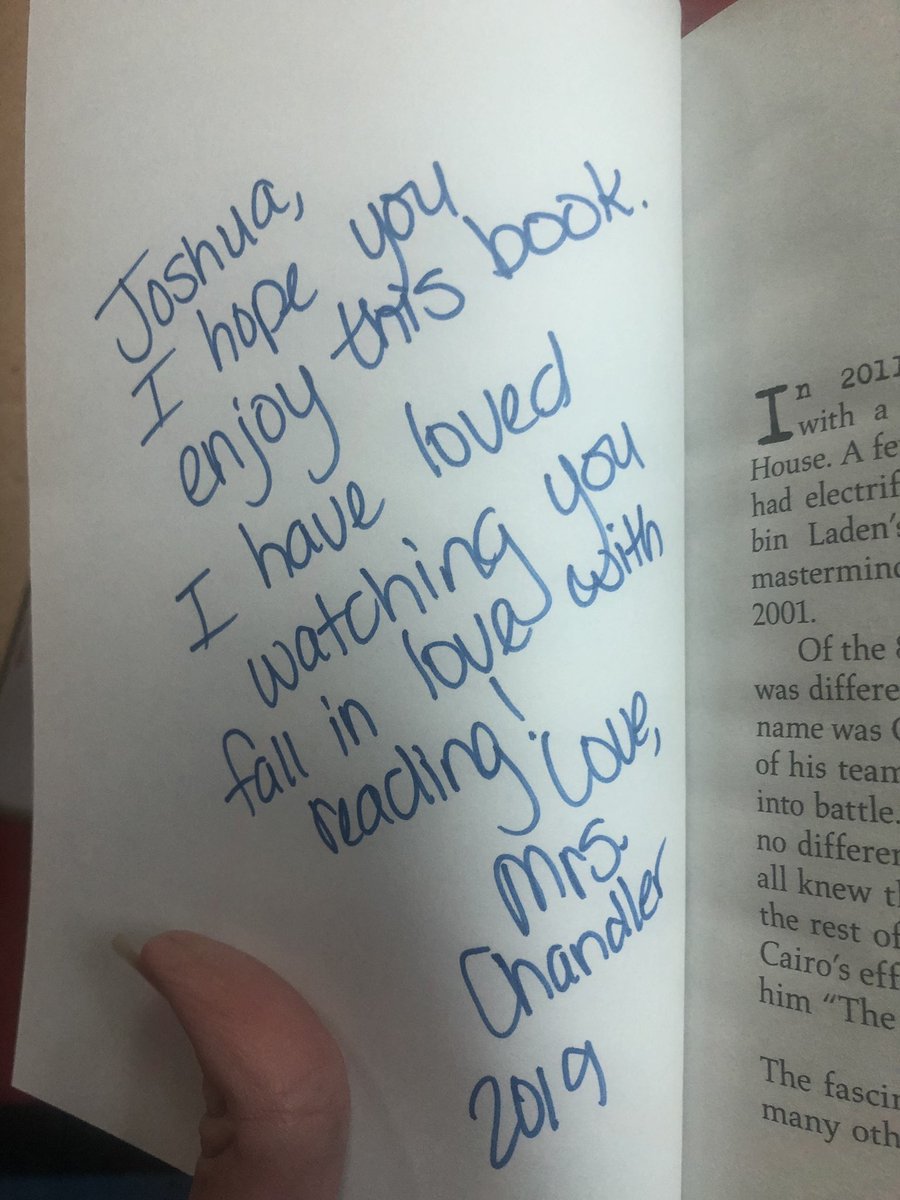 Joshua,
I hope you
enjoy this book.
I have loved
watching you
fall in love with
reading! Love,
Mrs.
Chandler
2019
In 2011
with a
House. A fe
had electrif
bin Laden's
mastermind
2001.
Of the
was differe
name was
of his team
into battle.
no differen
all knew th
the rest of
Cairo's eff
him "The
The fascin
many oth